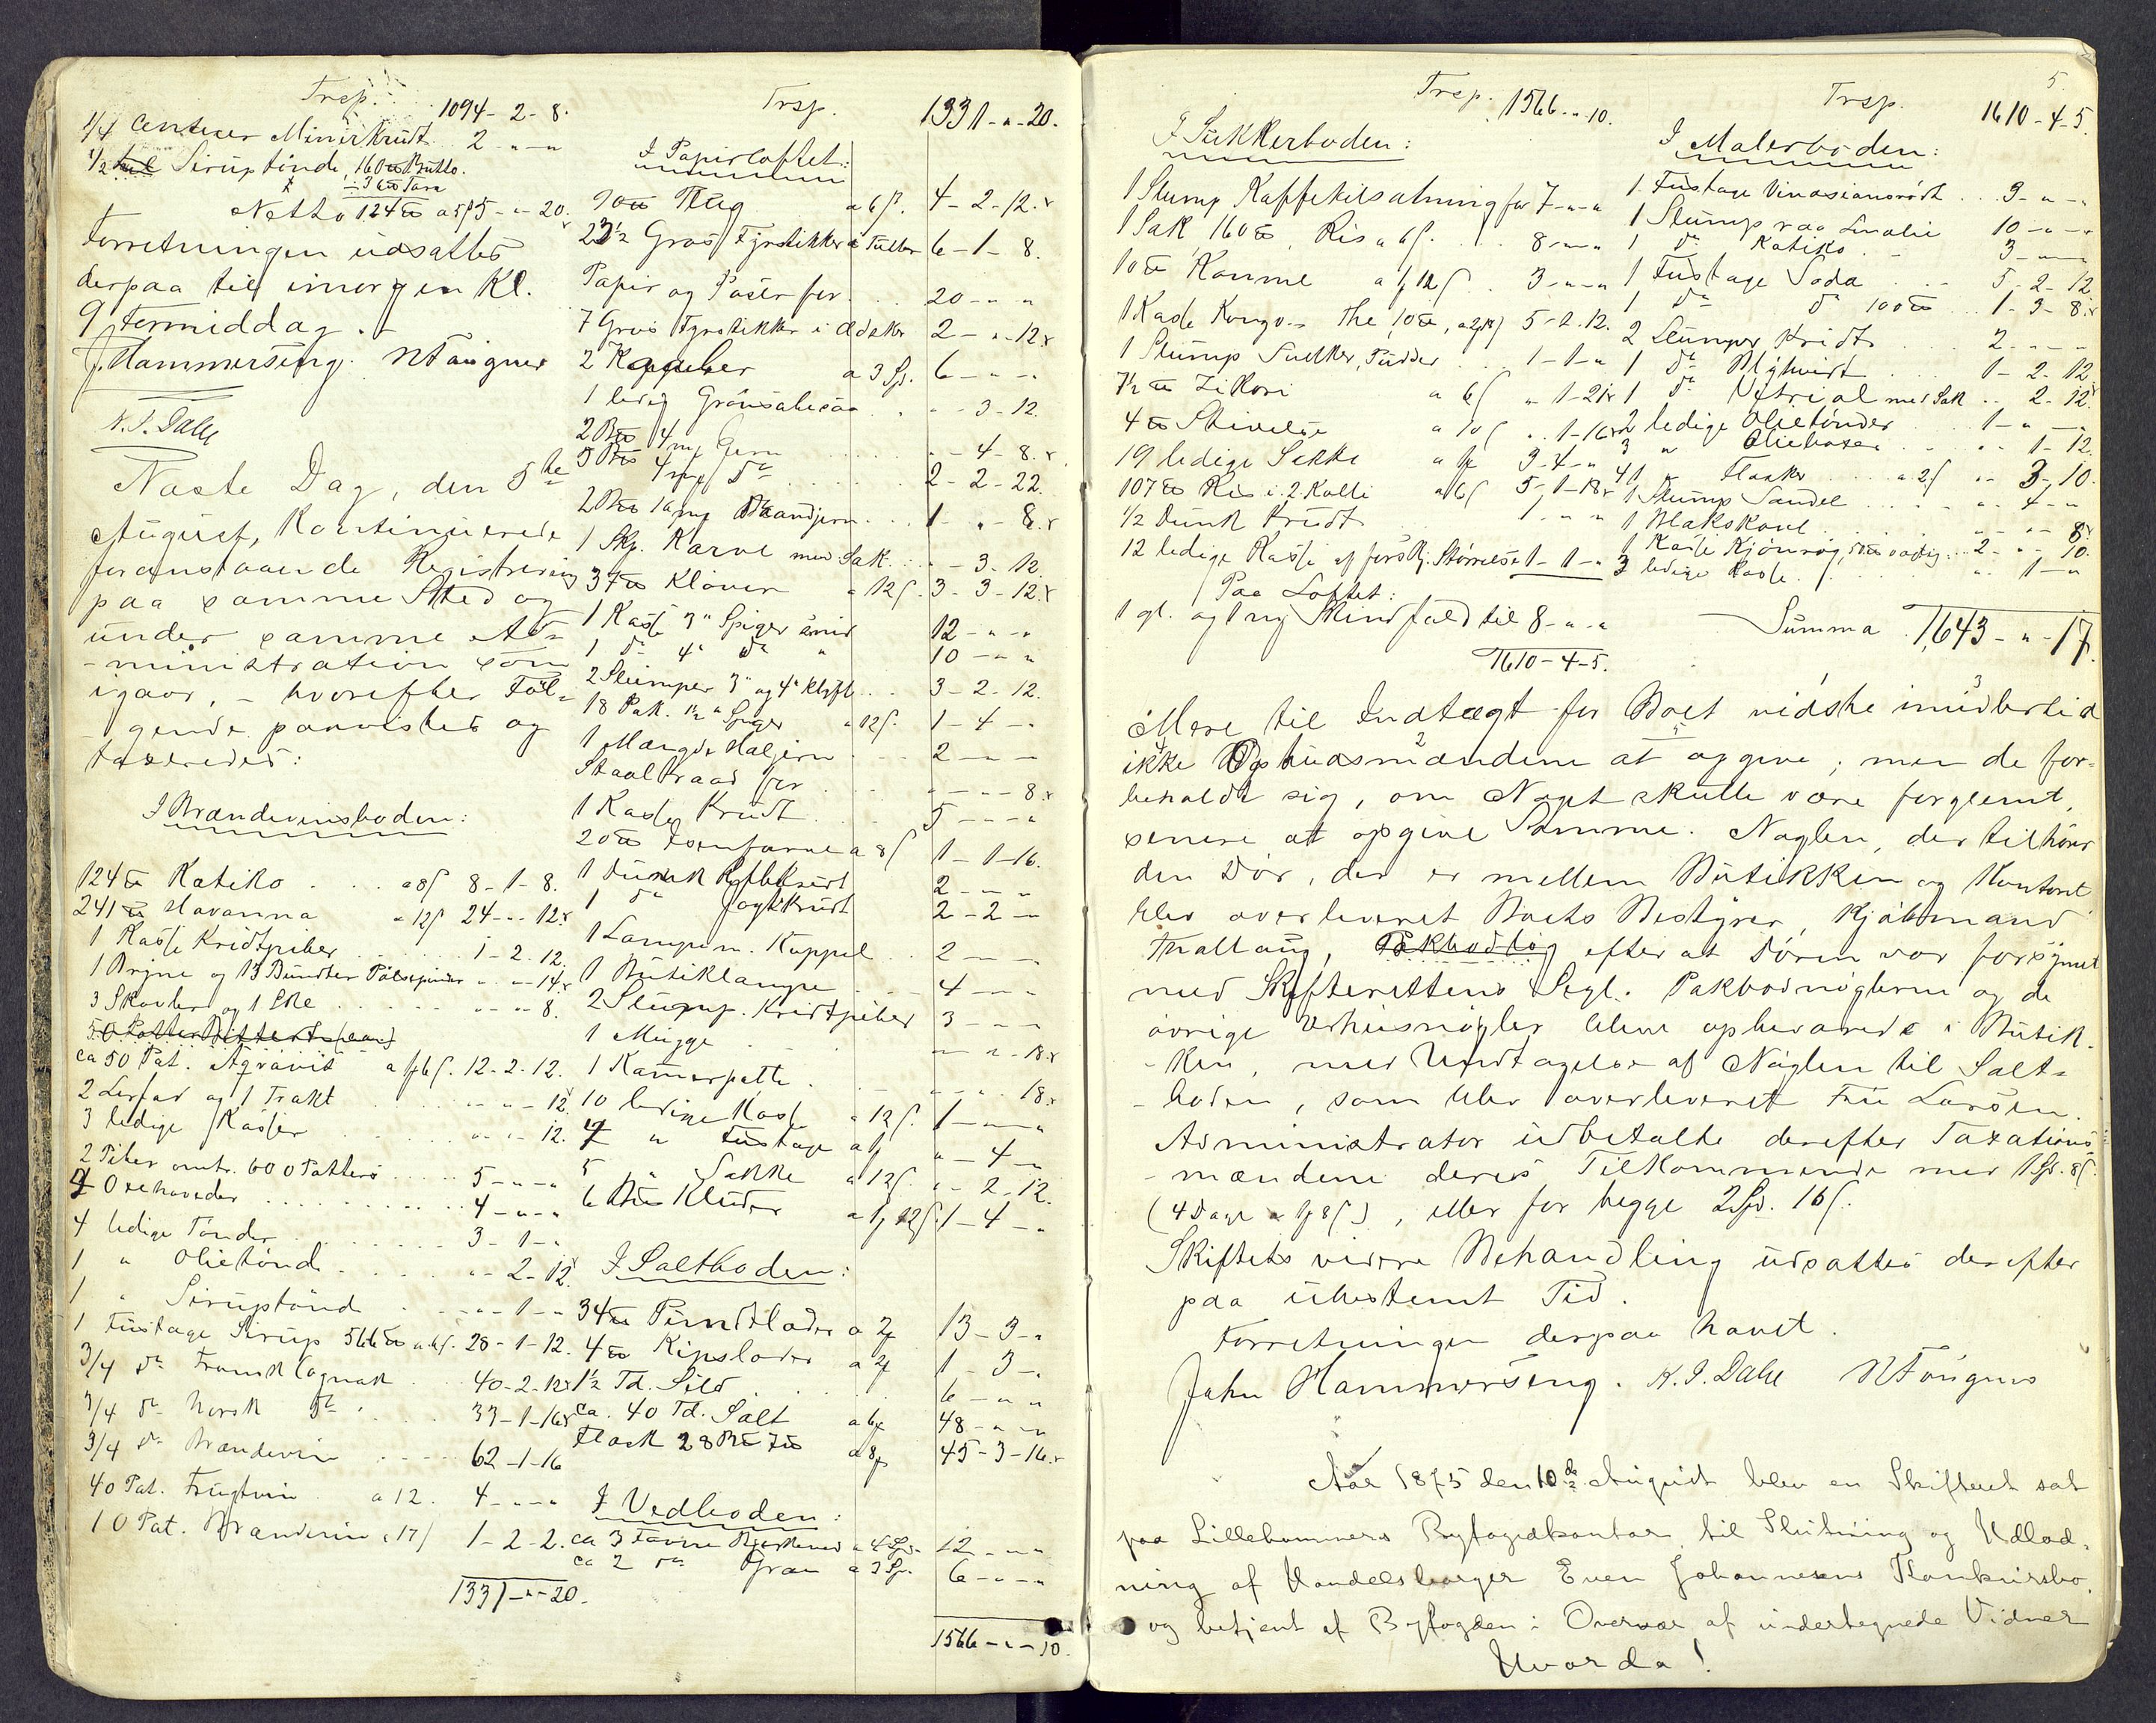 Trsp. 1094-2-8.
1/4 Centner Minerkrudt 2-"-"
1/2 Siruptønde, 160 ℔ Brutto.
÷ 36 ℔ Tara
Netto 124 ℔ a 5ſ 5-"-20.
Forretningen udsattes
derpaa til imorgen Kl.
9 Formiddag.
J. Hammerseng. N Fougner
K. J. Dahl
Næste Dag, den 5te
August, kontinuerede
foranstaaende Registrering
paa samme Sted og
under samme Ad-
-ministration som
igaar, - hvorefter Føl-
gende paavistes og
taxeredes:
I Brændevinsboden:
124 ℔ Katiko . . . a 8ſ 8-1-8.
241 ℔ Havanna a 12ſ 24-"-12
1 Kasse Kridtpiber 1-2-12.
1 Bryne og 13 Bundter Pølsepinder "-"-14
3 Skovler og 1 Øse "-"-8.
ca 50 Pat. Aqvavit 12-2-12.
2 Lerfad og 1 Trakt "-"-12
3 ledige Kasser "-"-12.
2 Piber omtr. 600 Potters 5-"-"
4 Oxehoveder 4-"-"
4 ledige Tønder 3-1-"
1 " Olietønde "-2-12
1 " Siruptønde "-1-"
1 Fustage Sirup 566 ℔ a 6ſ. 28-1-12.
3/4 do Fransk Cognak 40-2-12
3/4 do Norsk do 33-1-16
3/4 do Brændevin 62-1-16
40 Pat. Frugtvin a 12. 4-"-"
10 Pat. Brændevin a 17ſ 1-2-2.
1331-"-20.
Trsp. 1331-"-20.
I Papirloftet:
a 6ſ. 4-2-12.
Gros Fyrstikker i Futter 6-1-8.
Papir og Poser for 20-"-"
7 Gros Fyrstikker i Æsker 2-"-12
2 a 3 Sp. 6-"-"
1 ledig "-3-12.
"-4-8.
2-2-22.
2 B℔ 16 mk Baandjern 1-"-8.
1 Skp. Karve med Sak "-3-12
37 ℔ Kløver a 12ſ. 3-3-12.
1 Kasse 3" Spiger 12-"-"
1 do 4" do " 10-"-"
2 Slumper 3" og 4" 3-2-12.
18 Pak. 1½" Spiger a 12ſ. 1-4-"
1 Mængde Haljern 2-"-"
Staaltraad for "-"-8
1 Kasse Krudt 5-"-"
20 ℔ a 8ſ 1-1-16.
1 Dunk Riflekrudt 2-"-"
1 do Jagtkrudt 2-2-"
1 Lampe m. Kuppel 2-"-"
1 Butiklampe 4-"-"
2 Slump. Kridtpiber 3-"-"
1 Mugge "-"-18
1 Kamerpotte "-"-18
10 ledige Kasse a 12ſ. 1-"-"
4 " Fustage "-4-"
5 " Sække a 12ſ. "-2-12.
6 B℔ Klude 1-4-"
I Saltboden:
34 ℔ Pundlæder 13-3-"
4 ℔ Kipslæder 1-3-"
1½ Td. Sild 6-"-"
ca. 40 Td. Salt 48-"-"
45-3-16.
I Vedboden:
ca 3 Favne Birkeved a 4 Sp. 12-"-"
ca 2 do Gran a 3 Sp. 6-"-"
1566-"-10.
5
Trsp. 1566-"-10.
I Sukkerboden:
1 Slump Kaffetilsætning for 7-"-"
1 Sæk, 160 ℔, Ris a 6ſ. 8-"-"
10 ℔ Kanmel 3-"-"
1 Kasse Kongo- The, 10 ℔, 5-2-12.
1 Slump Sukker, Pudder 1-1-"
7½ ℔ Zikori a 6ſ "-1-21
4 ℔ Stivelse a 10ſ "-1-16
19 ledige Sække 3-4-"
107 ℔ Ris i 2 Kolli a 6ſ 5-1-18
1/2 Dunk Krudt 1-"-"
12 ledige Kasse af forskj. Størrelse 1-1-"
Paa Loftet:
1 gl. og 1 ny Skindfæld til 8-"-"
1610-4-5.
Trsp. 1610-4-5
I Malerboden:
1 Fustage 3-"-"
1 Slump raa Linolie 10-"-"
1 do Katiko 3-"-"
1 Fustage Soda 5-2-12
1 do do 100 ℔ 1-3-8.
2 Slumper Kridt 2-"-"
1 do Blyhvidt 1-2-12
1 do Vitriol med Sæk 2-12.
2 ledige Olietønder 1-"-"
3 " "-1-12.
41 " Flasker a 2ſ "-3-10.
1 Slump Sandel "-4-"
1 "-"-8
1 Kasse Kjønrøg, 2-"-10.
3 ledige Kasse "-1-"
Summa 1,643-"-17.
Mere til Indtægt for Boet vidste imidlertid
ikke Opbudsmændene at opgive; men de for-
beholdt sig, om Noget skulle være forglemt,
senere at opgive Samme. Nøglen, der tilhører
den Dør, der er mellem Butikken og Kontoret
blev overleveret Boets Bestyrer, Kjøbmand
Thallaug, efter at Døren var forsynet
med Skifterettens Segl. Pakbodnøglerne og de
øvrige Udhusnøgler bleve opbevarede i Butik-
-ken, med Undtagelse af Nøglen til Salt-
-boden, som blev overleveret Fru Larsen.
Administrator udbetalte derefter Taxations-
-mændene deres Tilkommende med 1 Sp. 8ſ.
(4 Dage a 8ſ), eller for begge 2 Spd. 16ſ.
Skiftets videre Behandling udsattes derefter
paa ubestemt Tid.
Forretningen derpaa hævet.
John Hammerseng. K. J. Dahl N Fougner
Aar 1875 den 10de August blev en Skifteret sat
paa Lillehammers Byfogedkontor til Slutning og Udlod-
ning af Handelsborger Even Johannesens Konkursbo,
og betjent af Byfogden i Overvær af undertegnede Vidner
Hvorda!